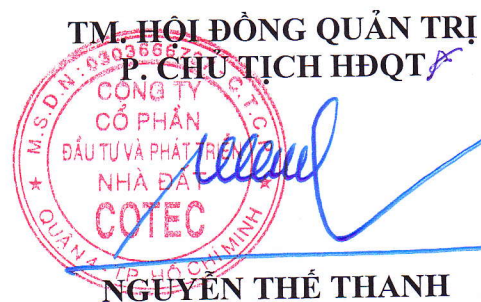 TM. HỘI ĐỒNG QUẢN TRỊ
P. CHỦ TỊCH HĐQT
M.S.D.N: 030366673 C.T.C.P
CÔNG TY
CỔ PHẦN
ĐẦU TƯ VÀ PHÁT TRIỂN
NHÀ ĐẤT
COTEC
QUẬN 4 - TP. HỒ CHÍ MINH
NGUYỄN THẾ THANH